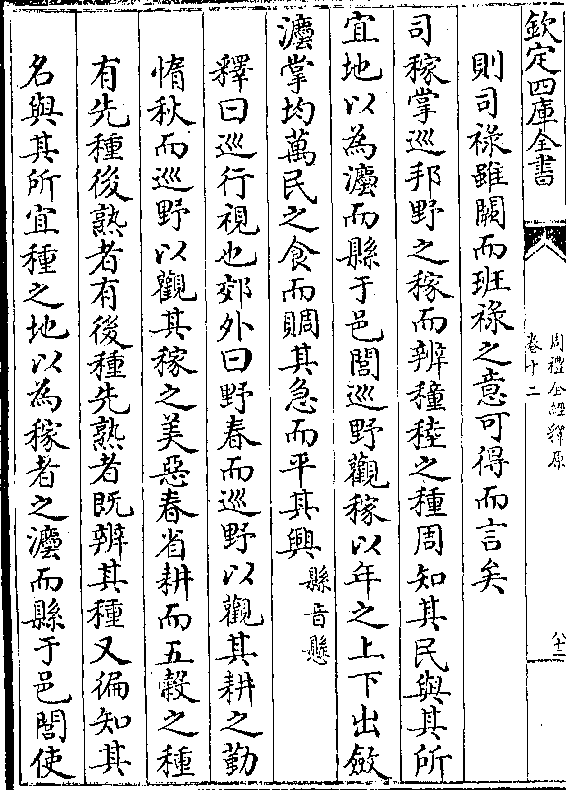 欽定四庫全書
周禮全經釋原
卷十二
六十二
則司祿雖闕而班祿之意可得而言矣
司稼掌巡邦野之稼而辨穜稑之種周知其民與其所
宜地以為灋而縣于邑閭巡野觀稼以年之上下出斂
灋掌均萬民之食而賙其急而平其興縣音懸
釋曰巡行視也郊外曰野春而巡野以觀其耕之勤
惰秋而巡野以觀其稼之美惡春省耕而五穀之種
有先種後熟者有後種先熟者既辨其種又徧知其
名與其所宜種之地以為稼者之灋而縣于邑閭使